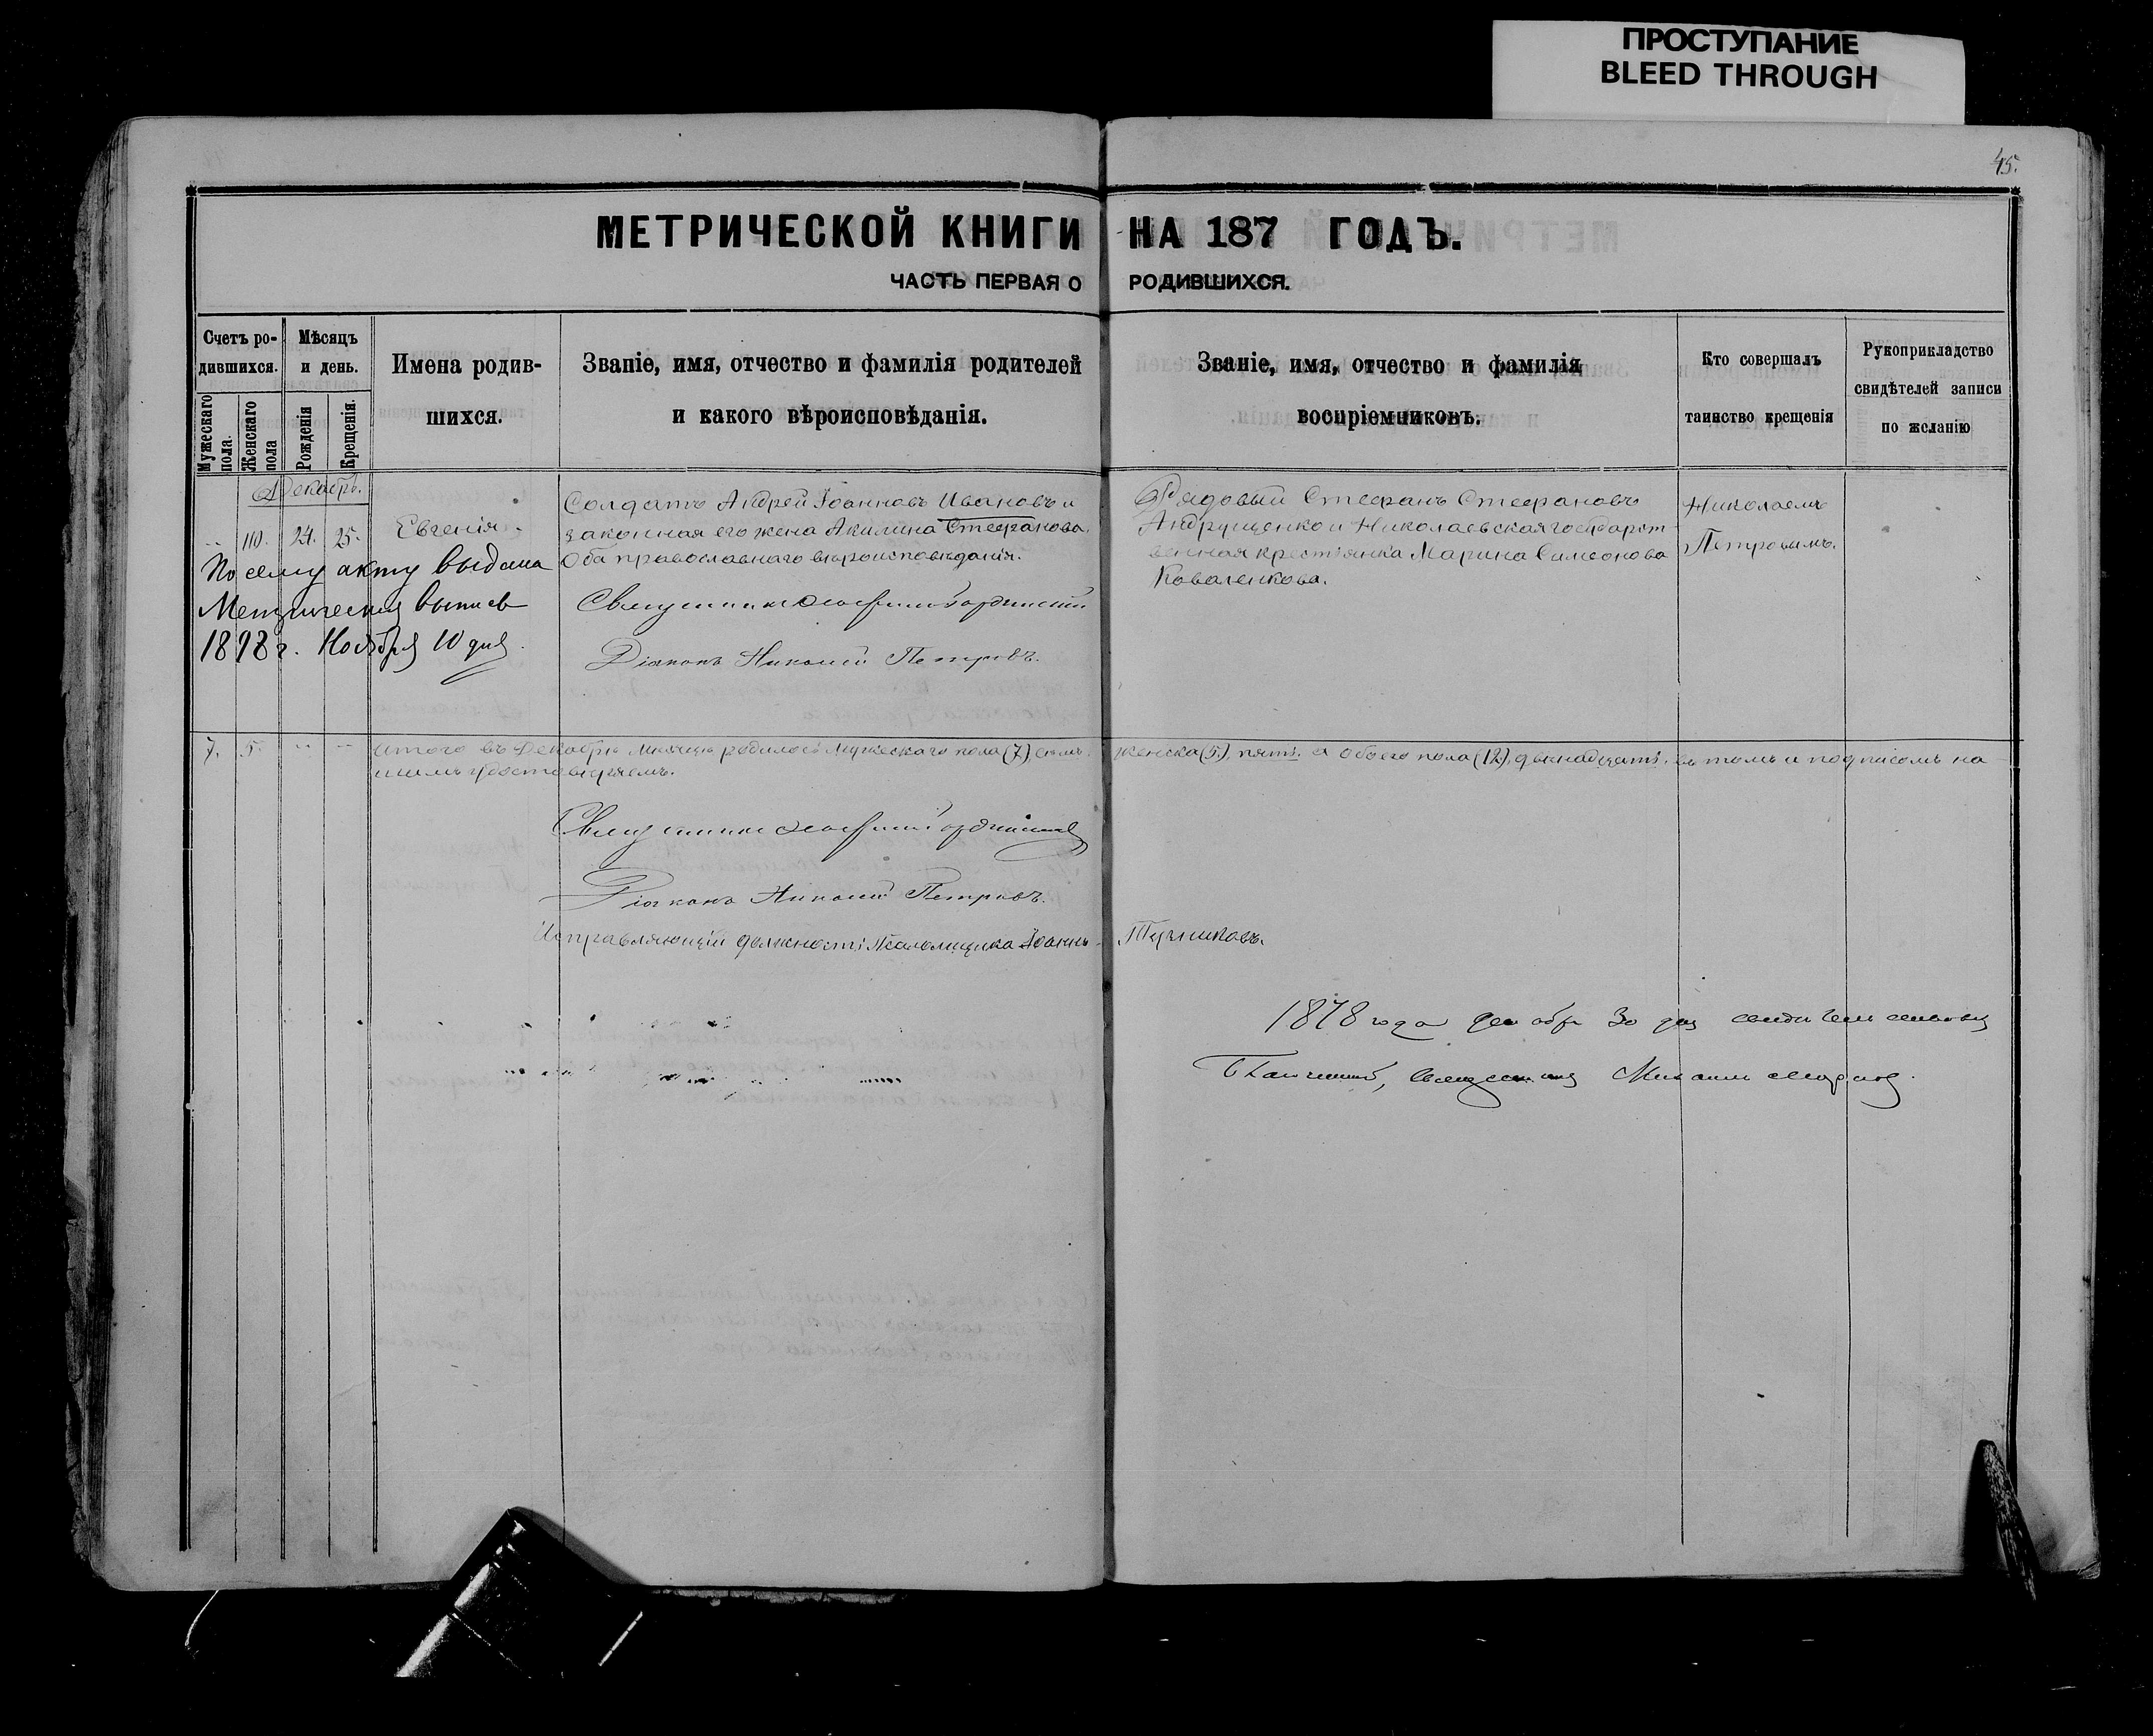 ПРОСТУПАНИЕ
BLEED THROUGH
45.
МЕТРИЧЕСКОЙ КНИГИ НА 187 ГОДЪ.
ЧАСТЬ ПЕРВАЯ О РОДИВШИХСЯ.
Счетъ ро-
дившихся.
Мужескаго пола.
Женскаго пола
Мѣсяцъ
и день.
Рожденія
Крещенія.
Имена родив-
шихся.
Званіе, имя, отчество и фамилія родителей
и какого вѣроисповѣданія.
Званіе, имя, отчество и фамилія
воспріемниковъ.
Кто совершалъ
таинство крещенія
Рукоприкладство
свидѣтелей записи
по желанію
Декабрь.
110. 24. 25. Евгенія.
Солдатъ Андрей Іоанновъ Ивановъ и
законная его жена Акилина Стефанова.
Оба православнаго вѣроисповѣданія.
Рядовый Стефанъ Стефановъ
Андрущенко и Николаевская государст
венная крестьянка Марина Симеонова
Коваленкова.
Николаемъ
Петровымъ.
По сему акту выдана
Метрическая выпись
1898 г. Ноября 10 дня.
Священникъ
Діаконъ Николай Петровъ.
7. 5. Итого въ Декабрѣ мѣсяцѣ родилось мужескаго пола (7), семь. женска (5), пять. а обоего пола (12), двѣнадцать. въ томъ и подписомъ на
шимъ удостовѣряемъ.
Священникъ
Діаконъ Николай Петровъ.
Исправляющій должность Псаломщика Іоаннъ
1878 года декабр 30 дня
Михаилъ